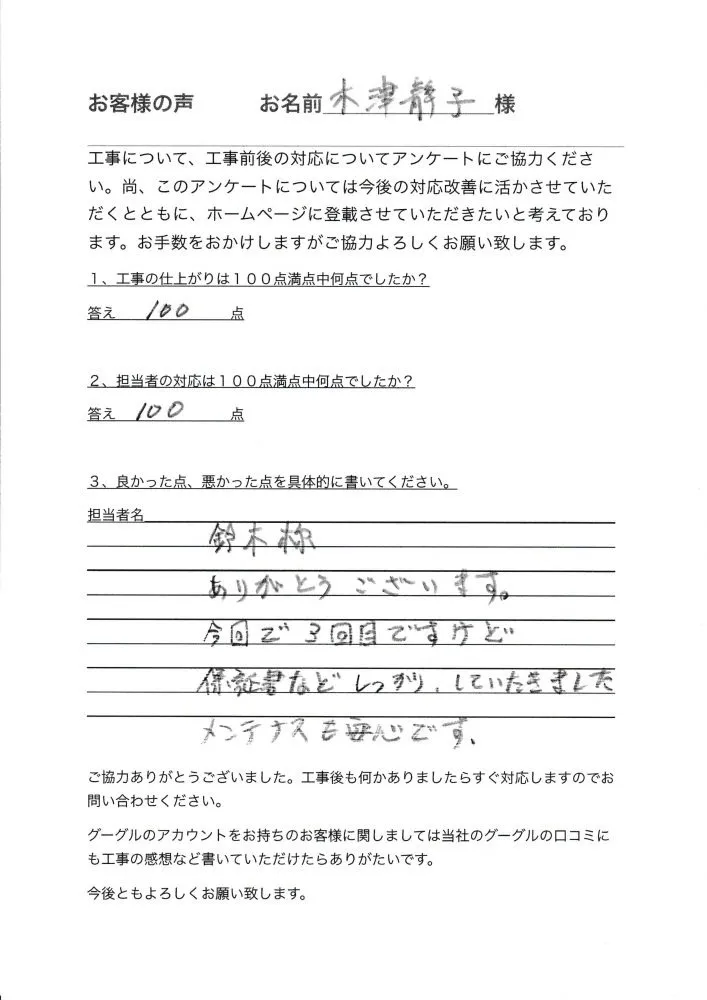 お客様の声 お名前 木津静子 様
工事について、工事前後の対応についてアンケートにご協力くださ
い。尚、このアンケートについては今後の対応改善に活かさせていた
だくとともに、ホームページに登載させていただきたいと考えており
ます。お手数をおかけしますがご協力よろしくお願い致します。
1、工事の仕上がりは100点満点中何点でしたか?
答え 100 点
2、担当者の対応は100点満点中何点でしたか?
答え 100 点
3、良かった点、悪かった点を具体的に書いてください。
担当者名
鈴木様
ありがとうございます。
今回で3回目ですけど
保証書などしっかり、していたきました
メンテナスも安心です、
ご協力ありがとうございました。工事後も何かありましたらすぐ対応しますのでお
問い合わせください。
グーグルのアカウントをお持ちのお客様に関しましては当社のグーグルの口コミに
も工事の感想など書いていただけたらありがたいです。
今後ともよろしくお願い致します。